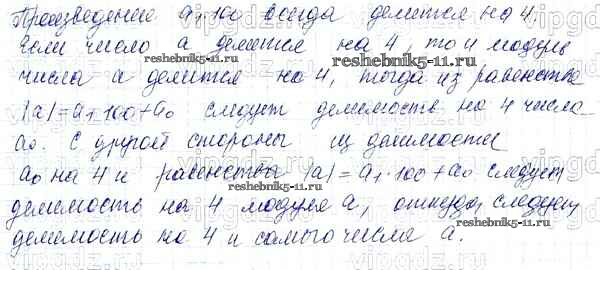 Произведение a₁·100 всегда делится на 4.
Если число a делится на 4, то и модуль
reshebnik5-11.ru
числа a делится на 4, тогда из равенства
|a|=a₁·100+a₀ следует делимость на 4 числа
reshebnik5-11.ru
a₀. С другой стороны из делимости
a₀ на 4 и равенства |a|=a₁·100+a₀ следует
reshebnik5-11.ru
делимость на 4 модуля a, откуда следует
reshebnik5-11.ru
делимость на 4 и самого числа a.